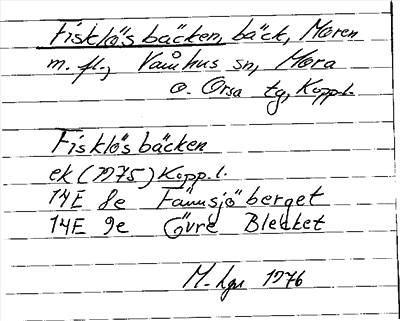 Fisklösbäcken, bäck, Moren
m. fl., Våmhus sn, Mora
o. Orsa tg, Kopp.l.
Fisklösbäcken
ek (1975) Kopp.l.
14E 8e Fämsjöberget
14E 9e Övre Blecket
M. 1976